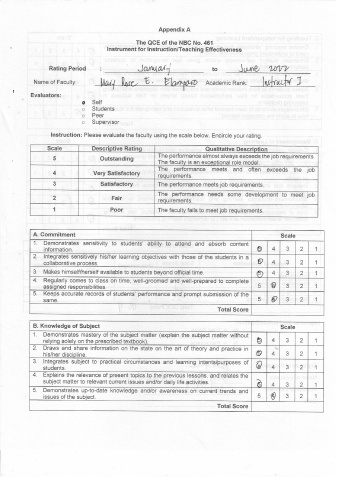 Appendix A
The QCE of the NBC No. 461
Instrument for Instruction/Teaching Effectiveness
Rating Period : January to June 2022
Name of Faculty: Mary Rose E. Academic Rank: Instructor I
Evaluators:
Self
Students
Peer
Supervisor
Instruction: Please evaluate the faculty using the scale below. Encircle your rating.
Scale Descriptive Rating Qualitative Description
5 Outstanding The performance almost always exceeds the job requirements.
The faculty is an exceptional role model
4 Very Satisfactory The performance meets and often exceeds the job
requirements
3 Satisfactory The performance meets job requirements.
2 Fair The performance needs some development to meet job
requirements.
1 Poor The faculty fails to meet job requirements.
A. Commitment Scale
1. Demonstrates sensitivity to students' ability to attend and absorb content
information. 5 4 3 2 1
2. Integrates sensitively his/her learning objectives with those of the students in a
collaborative process 5 4 3 2 1
3. Makes himself/herself available to students beyond official time 5 4 3 2 1
4. Regularly comes to class on time, well-groomed and well-prepared to complete
assigned responsibilities 5 4 3 2 1
5. Keeps accurate records of students' performance and prompt submission of the
same. 5 4 3 2 1
Total Score
B. Knowledge of Subject Scale
1. Demonstrates mastery of the subject matter (explain the subject matter without
relying solely on the prescribed textbook). 5 4 3 2 1
2. Draws and share information on the state on the art of theory and practice in
his/her discipline. 5 4 3 2 1
3. Integrates subject to practical circumstances and learning intents/purposes of
students. 5 4 3 2 1
4. Explains the relevance of present topics to the previous lessons, and relates the
subject matter to relevant current issues and/or daily life activities. 5 4 3 2 1
5. Demonstrates up-to-date knowledge and/or awareness on current trends and
issues of the subject. 5 4 3 2 1
Total Score